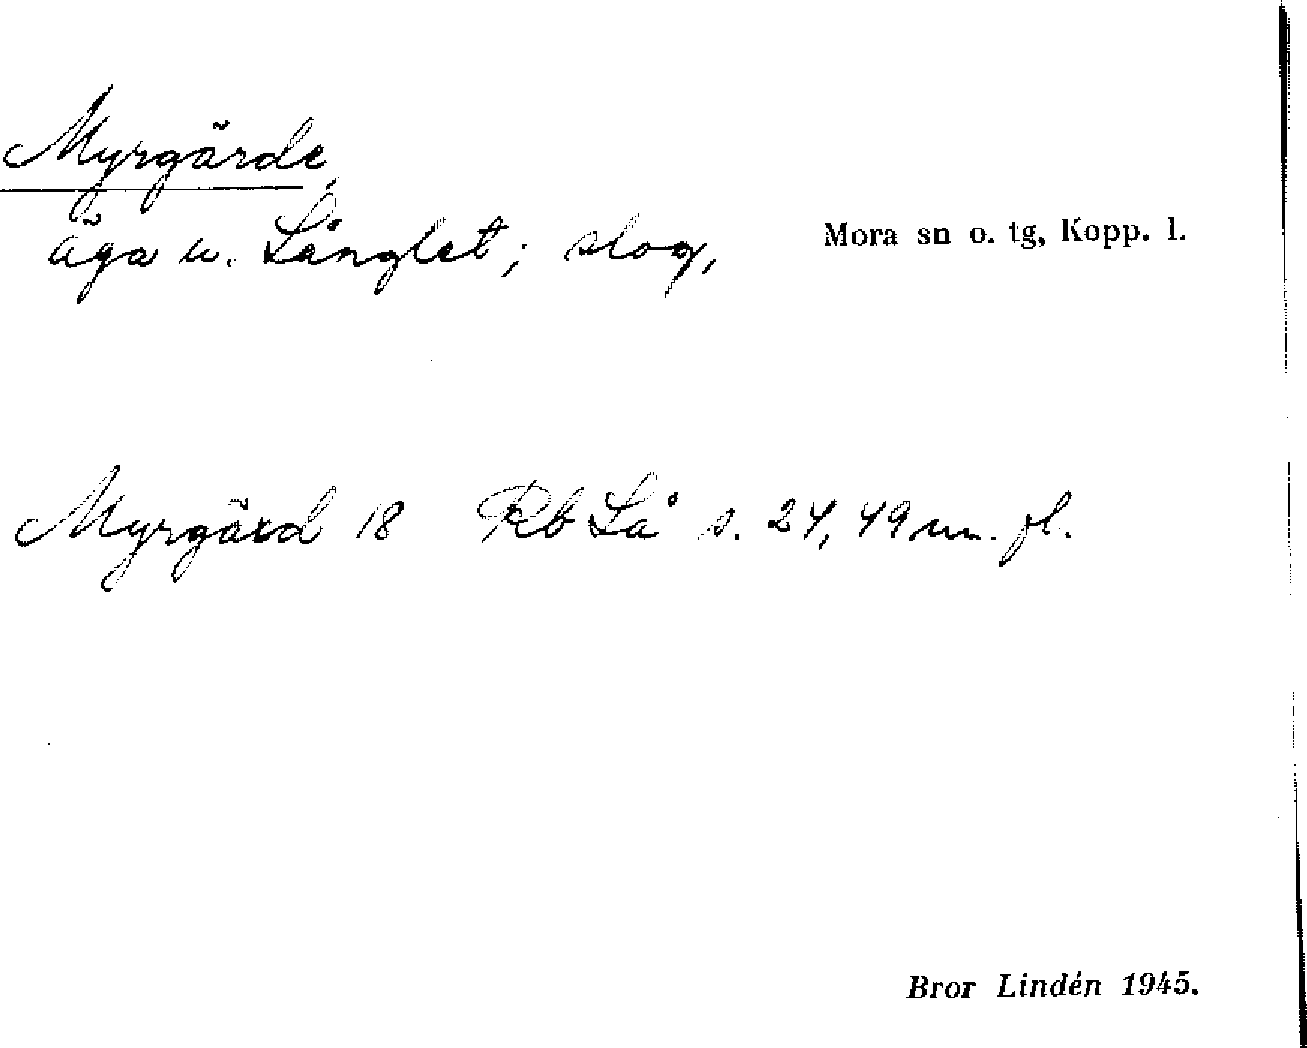 Myrgärde,
äga u. Långlet; slog,
Mora sn o. tg, Kopp. l.
Myrgärd 18 Rb Lå s. 24, 49 m. fl.
Bror Lindén 1945.